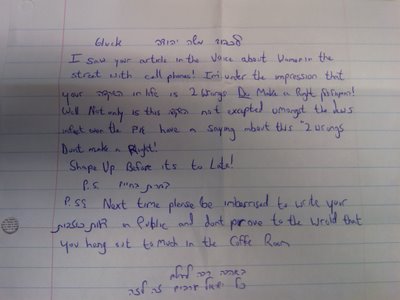 לכבוד משה יהודה Gluck
I saw your article in the Voice about Women in the
street with cell phones! Im under the impression that
your השקפה in life is 2 wrongs Do Make a Right
Well Not only is this השקפה not excepted amongst the Jews
infact even the have a saying about this "2 wrongs
Dont make a Right!
Shape Up Before its to Late!
P.S.
P.SS Next time please be imbarrised to write your
in Public and dont prove to the World that
you hang out to Much in the Coffe Room
כל ישראל ערבים זה לזה